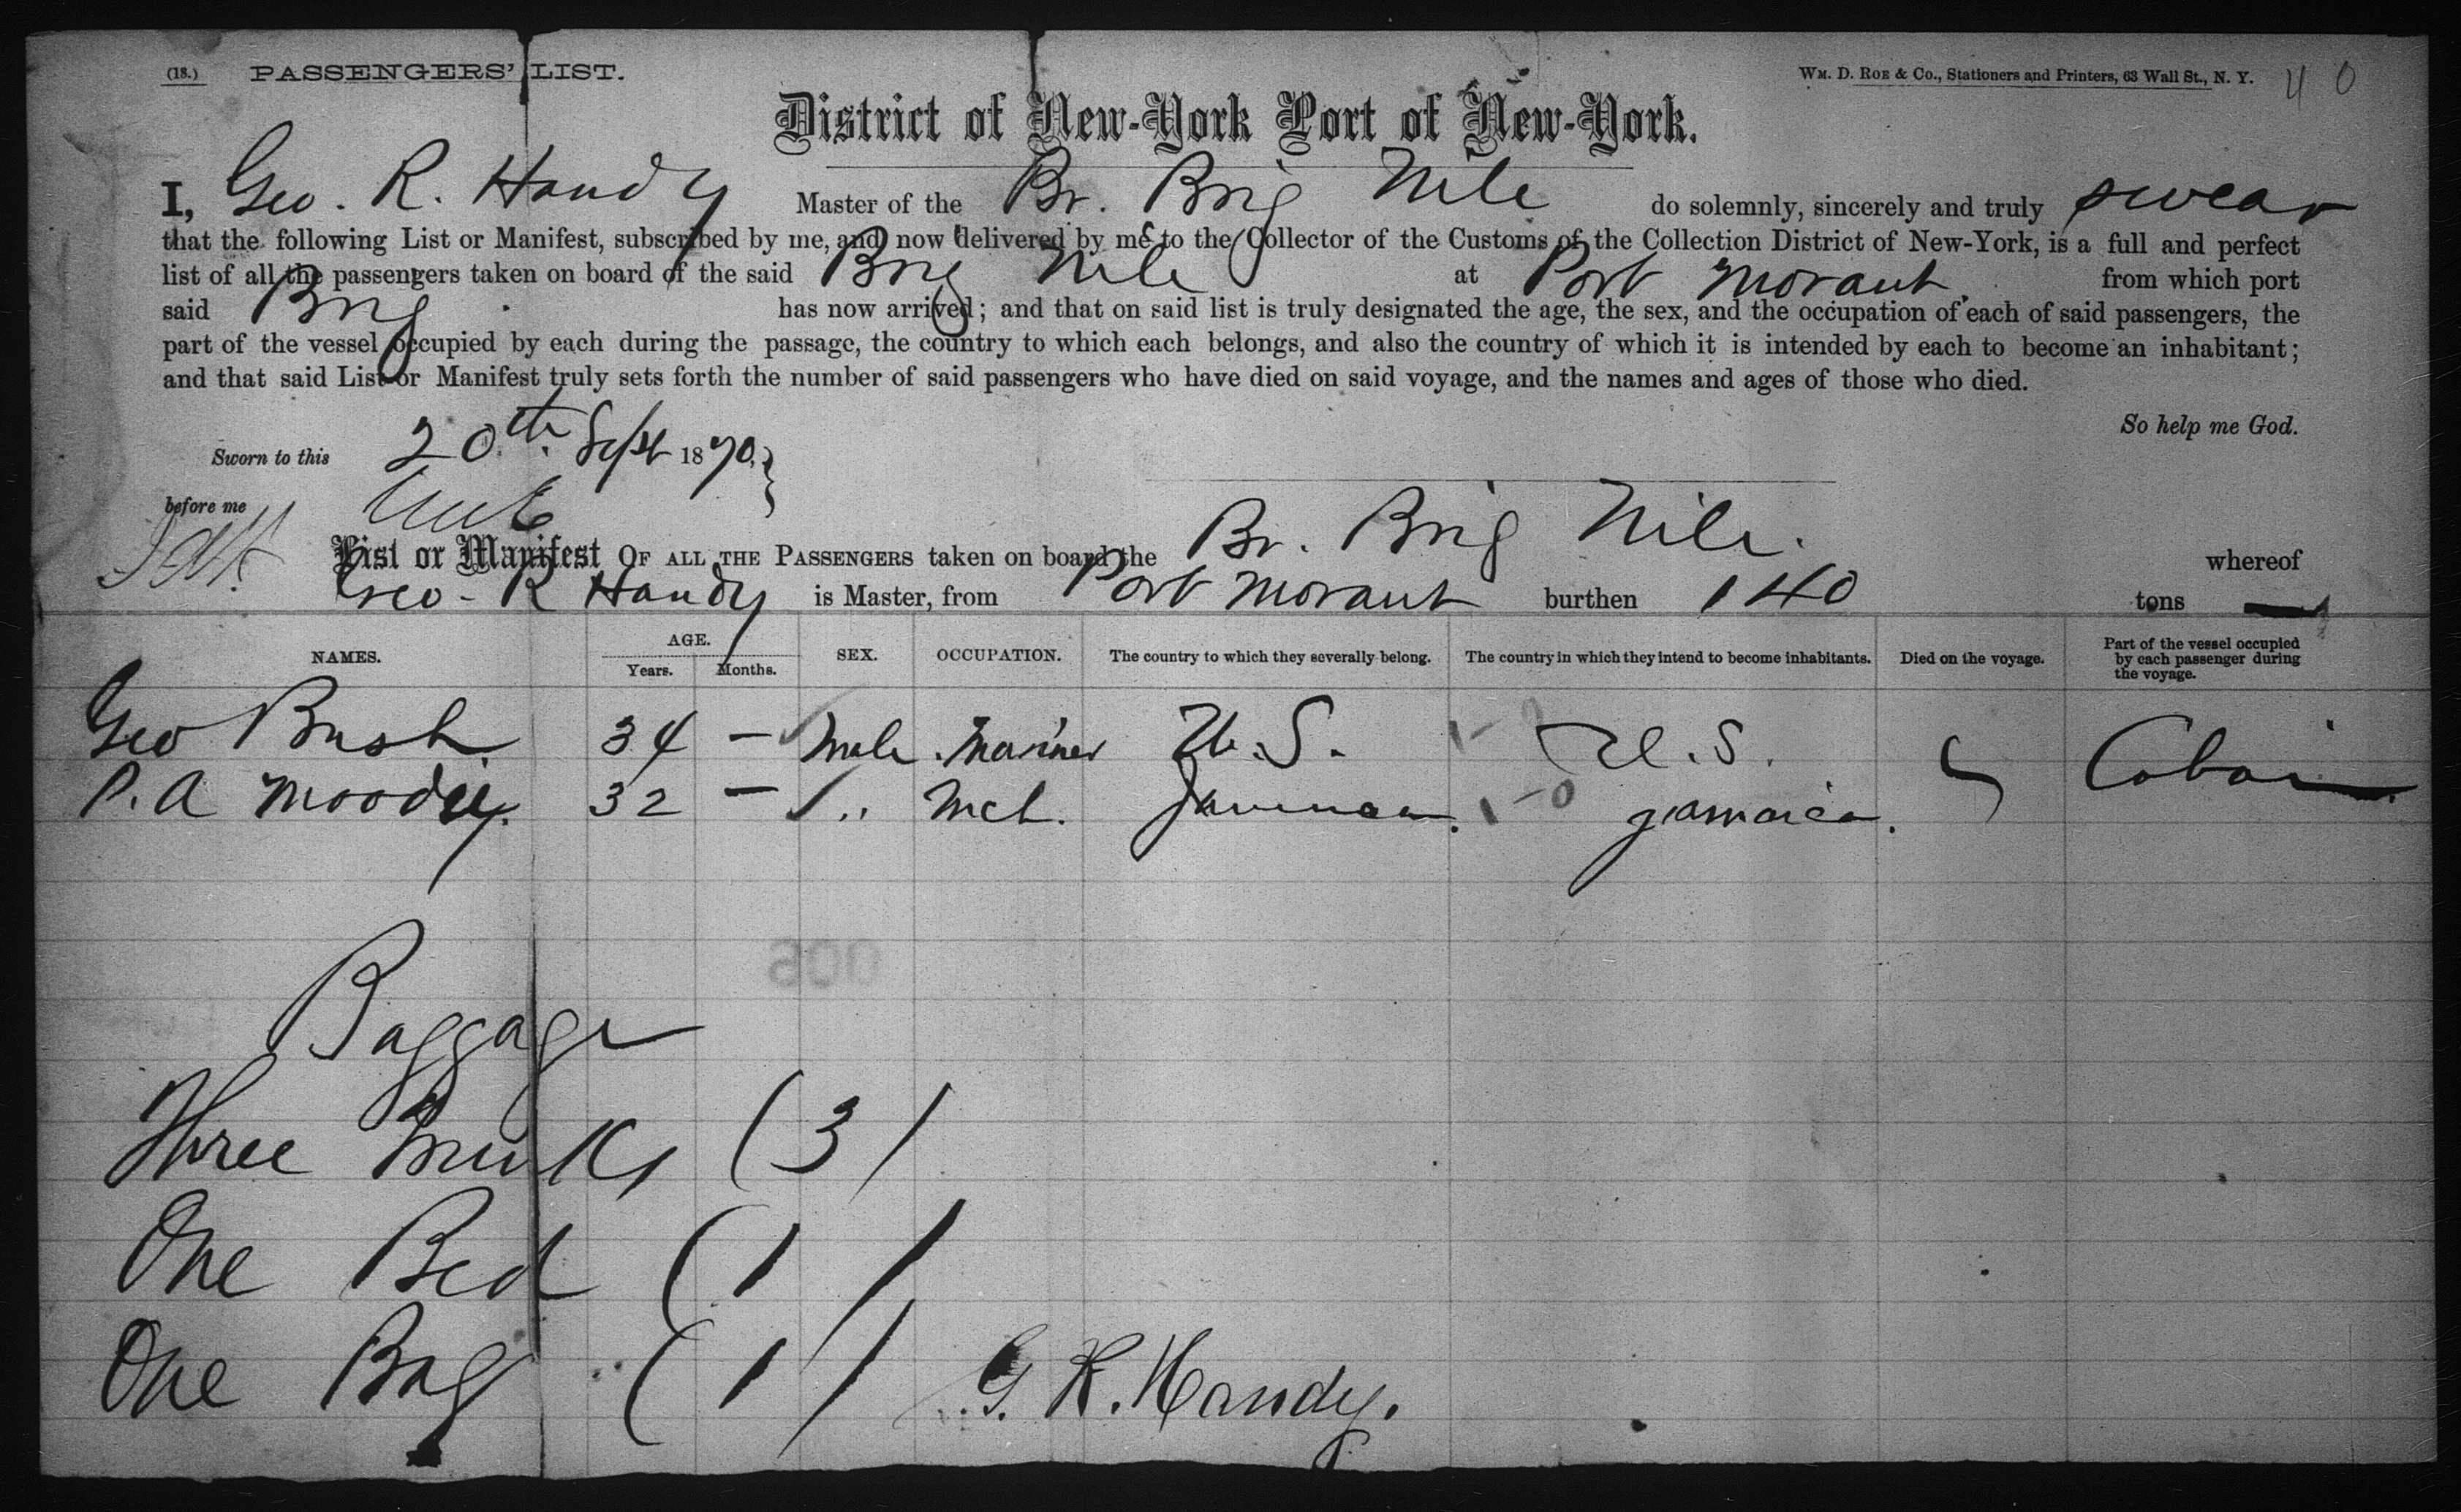 (18.) PASSENGERS' LIST.
WM. D. ROE & CO., Stationers and Printers, 63 Wall St., N. Y. 40
District of New-York Port of New-York.
I, Geo. R. Handy Master of the Br. Brig Nile do solemnly, sincerely and truly swear
that the following List or Manifest, subscribed by me, and now delivered by me to the Collector of the Customs of the Collection District of New-York, is a full and perfect
list of all the passengers taken on board of the said Brig Nile at Port Morant. from which port
said Brig has now arrived; and that on said list is truly designated the age, the sex, and the occupation of each of said passengers, the
part of the vessel occupied by each during the passage, the country to which each belongs, and also the country of which it is intended by each to become an inhabitant;
and that said List or Manifest truly sets forth the number of said passengers who have died on said voyage, and the names and ages of those who died.
So help me God.
Sworn to this 20th. Sept 1870.}
before me
List or Manifest OF ALL THE PASSENGERS taken on board the Br. Brig Nile. whereof
Geo - R Handy is Master, from Port Morant burthen 140 tons
NAMES. AGE. Years. Months. SEX. OCCUPATION. The country to which they severally belong. The country in which they intend to become inhabitants. Died on the voyage. Part of the vessel occupied by each passenger during the voyage.
Geo Bush 34 - Male. Mariner U.S. U.S. Cabin
P. A Moody. 32 - " Mch. Jamaica. 1-0 Jamaica.
600
Baggage
Three Trunks (3)
One Bed (1)
One Bag (1) G. R. Handy.